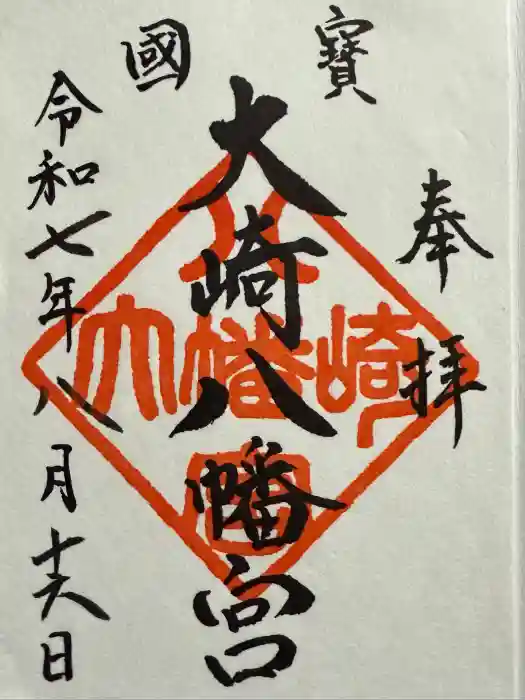 國寶
奉拝
大崎八幡宮
令和七年八月十六日
八
大幡崎
宮